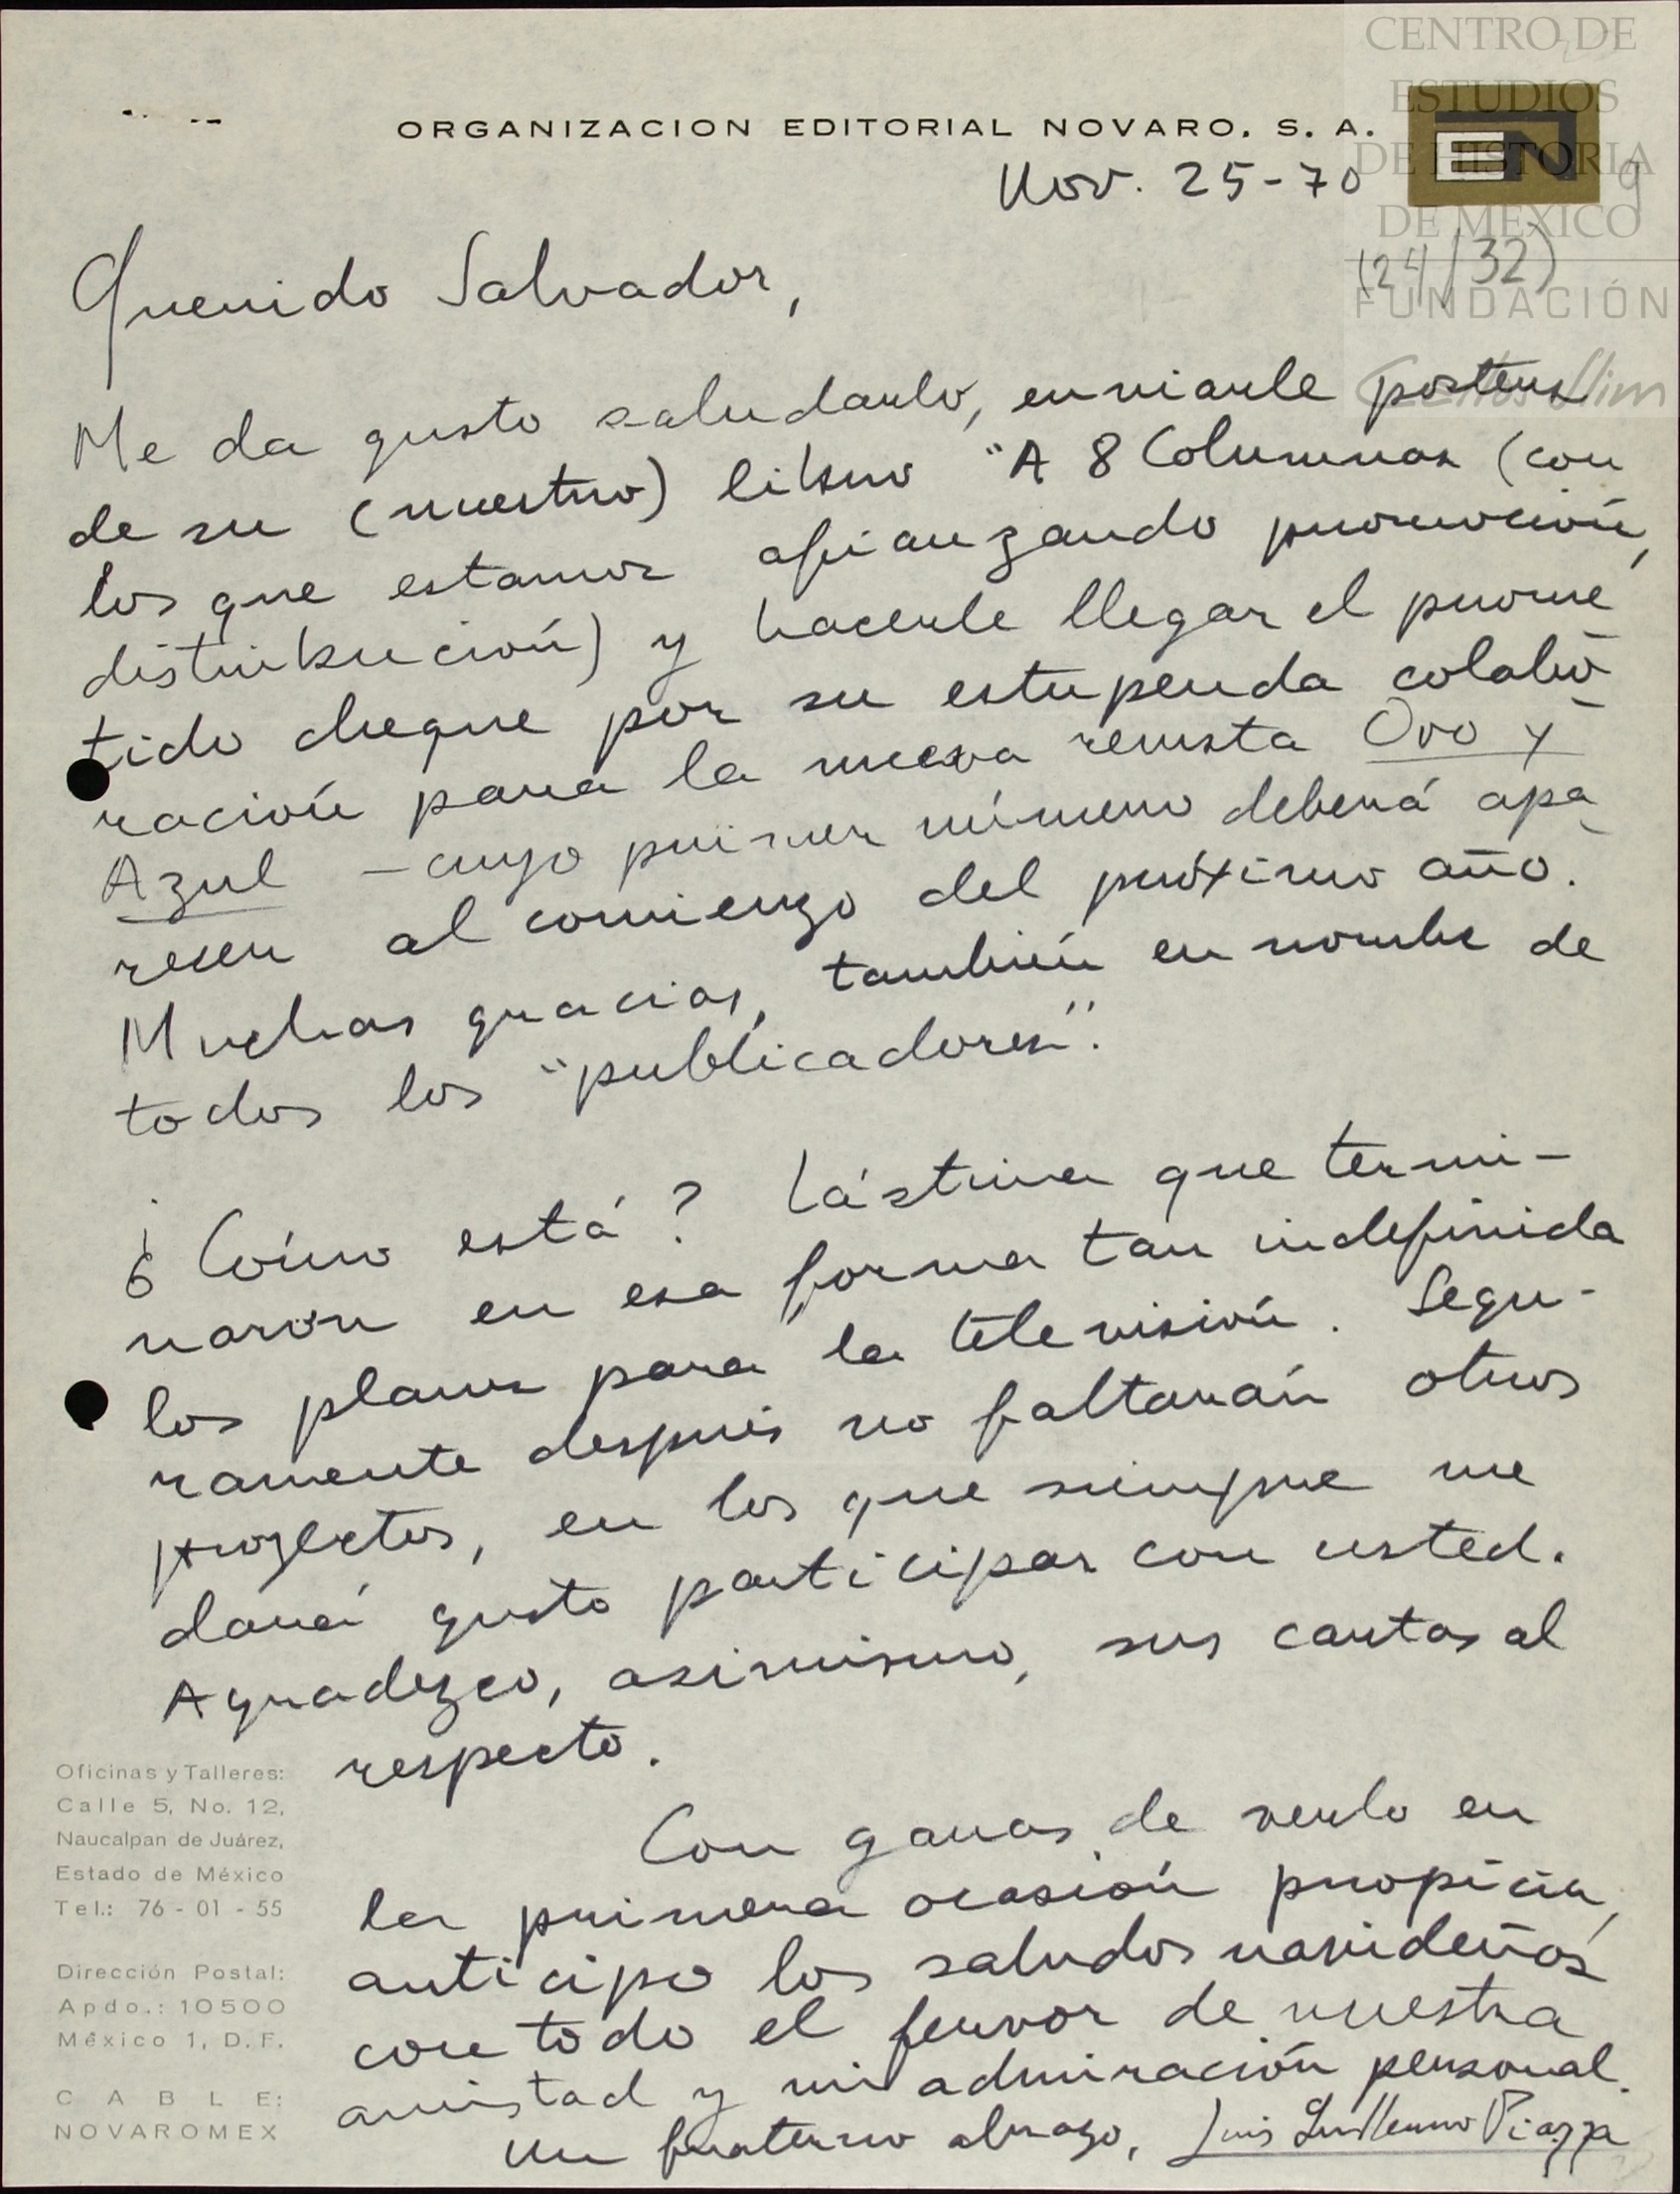 CENTRO DE
ESTUDIOS
DE HISTORIA
DE MÉXICO
FUNDACIÓN
Carlos Slim
ORGANIZACION EDITORIAL NOVARO, S. A.
EN
Nov. 25-70
9
(24/32)
Querido Salvador,
Me da gusto saludarlo, enviarle posters
de su (nuestro) libro "A 8 Columnas (con
los que estamos afianzando promoción,
distribución) y hacerle llegar el prome
tido cheque por su estupenda colabo-
ración para la nueva revista Oro y
Azul - cuyo primer número deberá apa-
recer al comienzo del próximo año.
Muchas gracias, también en nombre de
todos los "publicadores".
¿Cómo está? Lástima que termi-
naron en esa forma tan indefinida
los planes para la televisión. Segu-
ramente después no faltarán otros
proyectos, en los que siempre me
dará gusto participar con usted.
Agradezco, asimismo, sus cartas al
respecto.
Con ganas de verlo en
la primera ocasión propicia,
anticipo los saludos navideños
con todo el fervor de nuestra
amistad y mi admiración personal.
Un fraterno abrazo, Luis Guillermo Piazza
Oficinas y Talleres:
Calle 5, No. 12,
Naucalpan de Juárez,
Estado de México
Tel.: 76 - 01 - 55
Dirección Postal:
Apdo.: 10500
México 1, D. F.
C A B L E:
NOVAROMEX